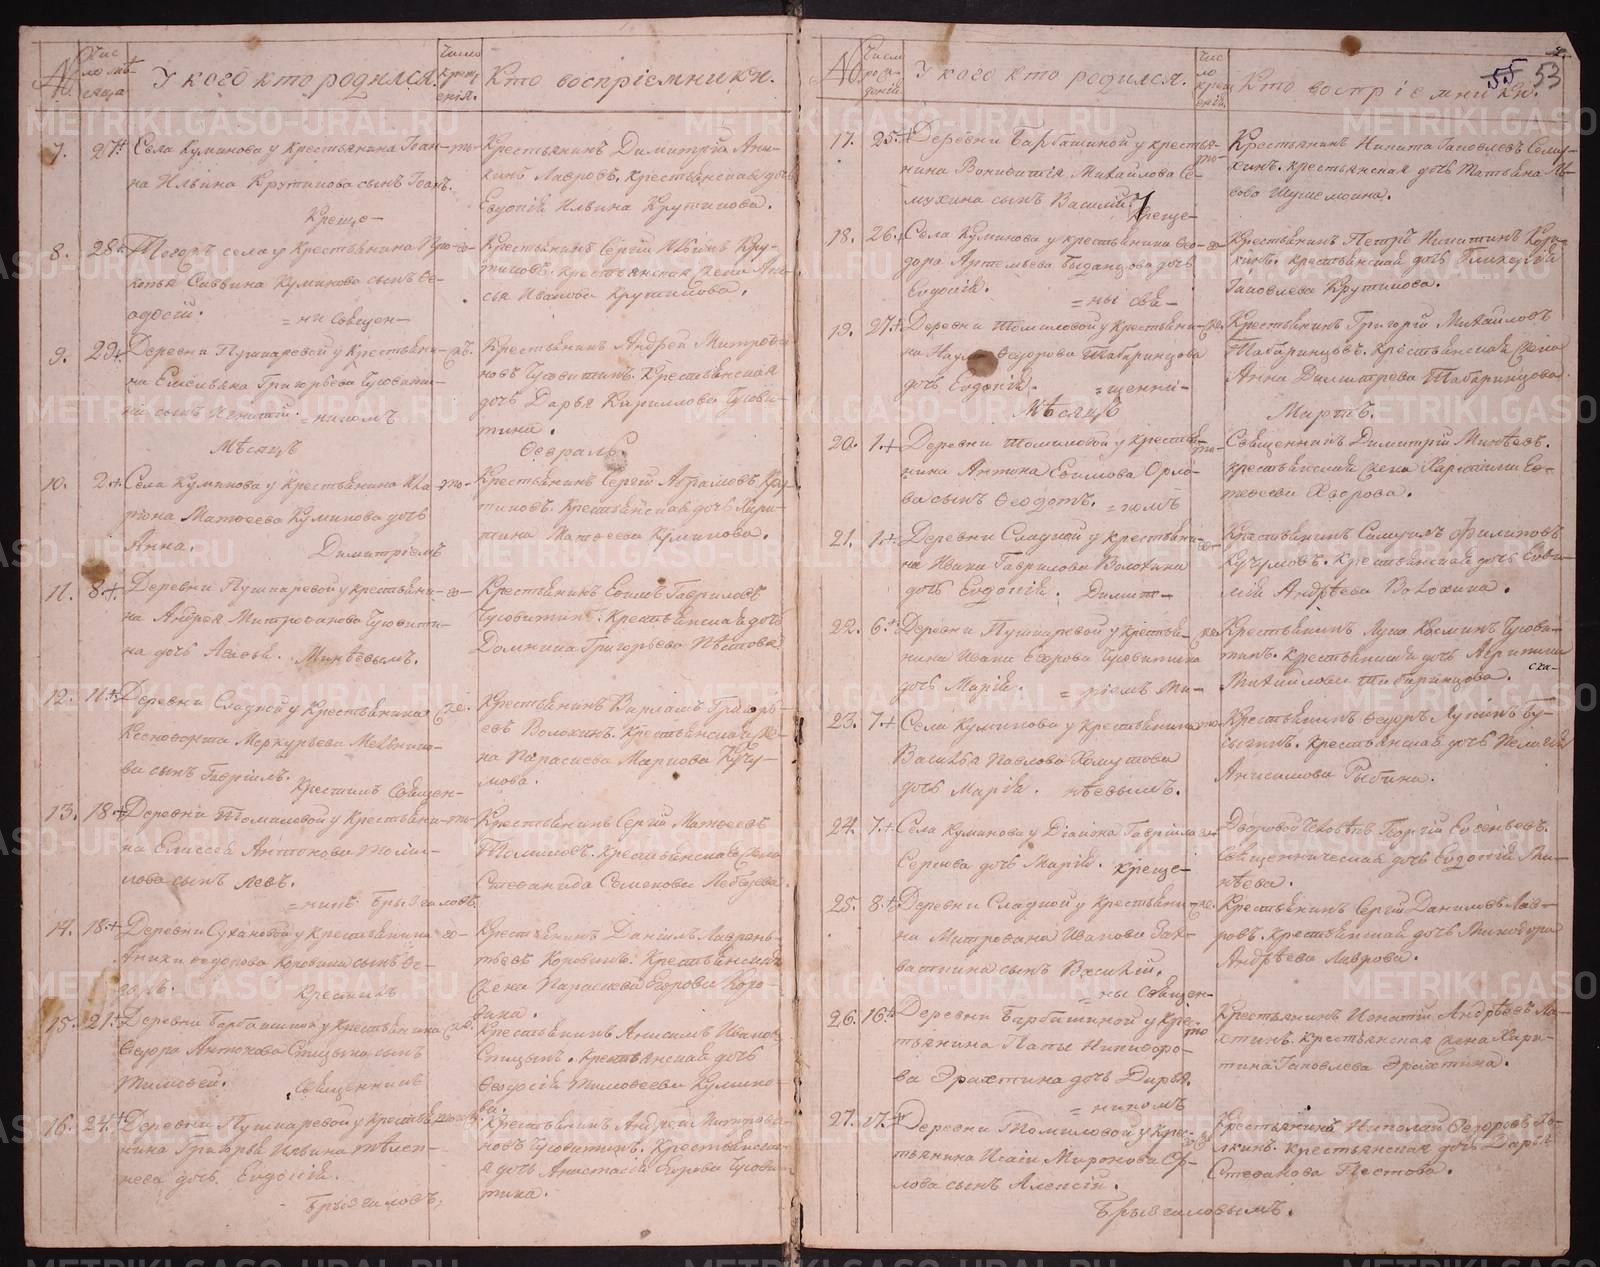 №
Число мѣсяца
У кого кто родился.
Число крещенія.
Кто воспріемники.
7. 27
Села Куминова у Крестьянина Іоан-
на Ильина Крутикова сынъ Іоанъ.
то-
Крестьянинъ Димитрій Ани-
кинъ Лавровъ. Крестьянская дочь
Евдокія Ильина Крутикова.
Креще-
8. 28
Тогожъ села у Крестьянина Про-
копья Саввина Куминова сынъ Ѳе-
одосій.
го-
Крестьянинъ Сергій Ильинъ Кру-
тиковъ. Крестьянская жена
Иванова Крутикова.
=ни Священ-
9. 29
Деревни Пушкаревой у Крестьяни-
на Емельяна Григорьева Чусовити-
на сынъ Игнатій.
жъ.
Крестьянинъ Андрей Митрофа-
новъ Чусовитинъ. Крестьянская
дочь Дарья Кириллова Чусови-
тина.
=никомъ
Мѣсяцъ
Февраль.
10. 2
Села Куминова у Крестьянина Ила-
ріона Матѳеева Куминова дочь
Анна.
то-
Крестьянинъ Сергій Абрамовъ Кру-
тиковъ. Крестьянская дочь Хари-
тина Матѳеева Куминова.
Димитріемъ
11. 8
Деревни Пушкаревой у крестьяни-
на Андрея Митрофанова Чусовити-
на дочь Агафья.
го-
Крестьянинъ Ефимъ Гавриловъ
Чусовитинъ. Крестьянская дочь
Домнина Григорьева Пѣстова
Минѣевымъ.
12. 11
Деревни Сладкой у Крестьянина
Ксенофонта Меркурьева Мельник-
ва сынъ Гавріилъ.
же.
Крестьянинъ Варлаамъ Григорь-
евъ Волохинъ. Крестьянская же-
на Параскева Маркова Кучу-
мова.
Крестилъ Священ-
13. 18
Деревни Томиловой у Крестьяни-
на Елисея Антонова Томи-
лова сынъ Левъ.
то-
Крестьянинъ Сергій Матѳеевъ
Томиловъ. Крестьянская жена
Стефанида Семенова Лебедева.
=никъ Брызгаловъ.
14. 18
Деревни Сухановой у Крестьянина
Аники Ѳедорова Коровина сынъ
го-
Крестьянинъ Даніилъ Лаврень-
тьевъ Коровинъ. Крестьянская
жена Параскева Егорова Коро-
вина.
Крестилъ
15. 21
Деревни Барбашиной у Крестьянина
Ѳедора Антонова Спицына сынъ
Тимоѳей.
же.
Крестьянинъ Анисимъ Ивановъ
Спицынъ. Крестьянская дочь
Ѳеодосія Тимоѳеева Кумино-
ва.
Священникъ
16. 24
Деревни Пушкаревой у Крестья-
нина Григорья Ильина Тѣлеп-
нева дочь Евдокія.
Крестьянинъ Андрей Митрофа-
новъ Чусовитинъ. Крестьянска-
я дочь Анастасія Егорова Чусови-
тина.
Брызгаловъ.
2.
55 53
№
Число рожденій
У кого кто родился.
Число крещеній.
Кто воспріемники.
17. 25
Деревни Барбашиной у крестья-
нина Вонифатія Михайлова Се-
мухина сынъ Василій.
то-
Крестьянинъ Никита Іаковлевъ Сему-
хинъ. крестьянская дочь Татьяна Ль-
вова
Креще-
18. 26
Села Куминова у крестьянина Ѳео-
дора Артемьева Быданцова дочь
Евдокія.
го-
Крестьянинъ Петръ Никитинъ
Крестьянская дочь Гликерія
Іаковлева Крутикова.
=ны Свя-
19. 27
Деревни Томиловой у крестьяни-
на Наума Ѳедорова Табаринцова
дочь Евдокія.
же.
Крестьянинъ Григорій Михайловъ
Табаринцовъ. Крестьянская жена
Анна Димитрева Табаринцова.
=щенни-
Мѣсяцъ
Мартъ.
20. 1.
Деревни Томиловой у крестья-
нина Антона Ефимова Орло-
ва сынъ Ѳеодотъ.
то-
Священникъ Димитрій Минѣевъ.
крестьянская жена Харитина Ев-
тѳеева Хворова.
=комъ
21. 1.
Деревни Сладкой у крестьяни-
на Ивана Гаврилова Волохина
дочь Евдокія.
го-
Крестьянинъ Самуилъ Филиповъ
Кучумовъ. Крестьянская дочь Евфи-
мія Андрѣева Волохина.
Димит-
22. 6.
Деревни Пушкаревой у Крестья-
нина Ивана Егорова Чусовитина
дочь Марія.
же
Крестьянинъ Лука Козминъ Чусови-
тинъ. Крестьянская дочь Агрипина
Михайлова Табаринцова.
=ріемъ Ми-
23. 7.
Села Куминова у Крестьянина
Василья Павлова Хомутова
дочь Марія.
то-
Крестьянинъ Ѳедоръ Лукинъ Бу-
сыгинъ. Крестьянская дочь Пелагія
Анисимова Рыбина.
нѣевымъ.
24. 7.
Села Куминова у Діакона Гавріила
Сергіева дочь Марія.
го-
Дворовой человѣкъ Георгій Евгеньевъ.
Священническая дочь Евдокія Ми-
нѣева.
Креще-
25. 8.
Деревни Сладкой у Крестьяни-
на Митрофана Иванова Зах-
ваткина сынъ Василій.
же.
Крестьянинъ Сергій Даниловъ Лав-
ровъ. Крестьянская дочь Никодора
Андрѣева Лаврова.
=ны Священ-
26. 16.
Деревни Барбашиной у Крес-
тьянина Папы Никифоро-
ва Эрахтина дочь Дарья.
то
Крестьянинъ Игнатій Андрѣевъ
Крестьянская жена Хари-
тина Іаковлева Эрахтина.
=никомъ
27. 17.
Деревни Томиловой у Крес-
тьянина Исаіи Миронова Ор-
лова сынъ Алексій.
Крестьянинъ Николай Ѳедоровъ
Крестьянская дочь Дарья
Стефанова Пестова.
Брызгаловымъ.
METRIKI.GASO-URAL.RU